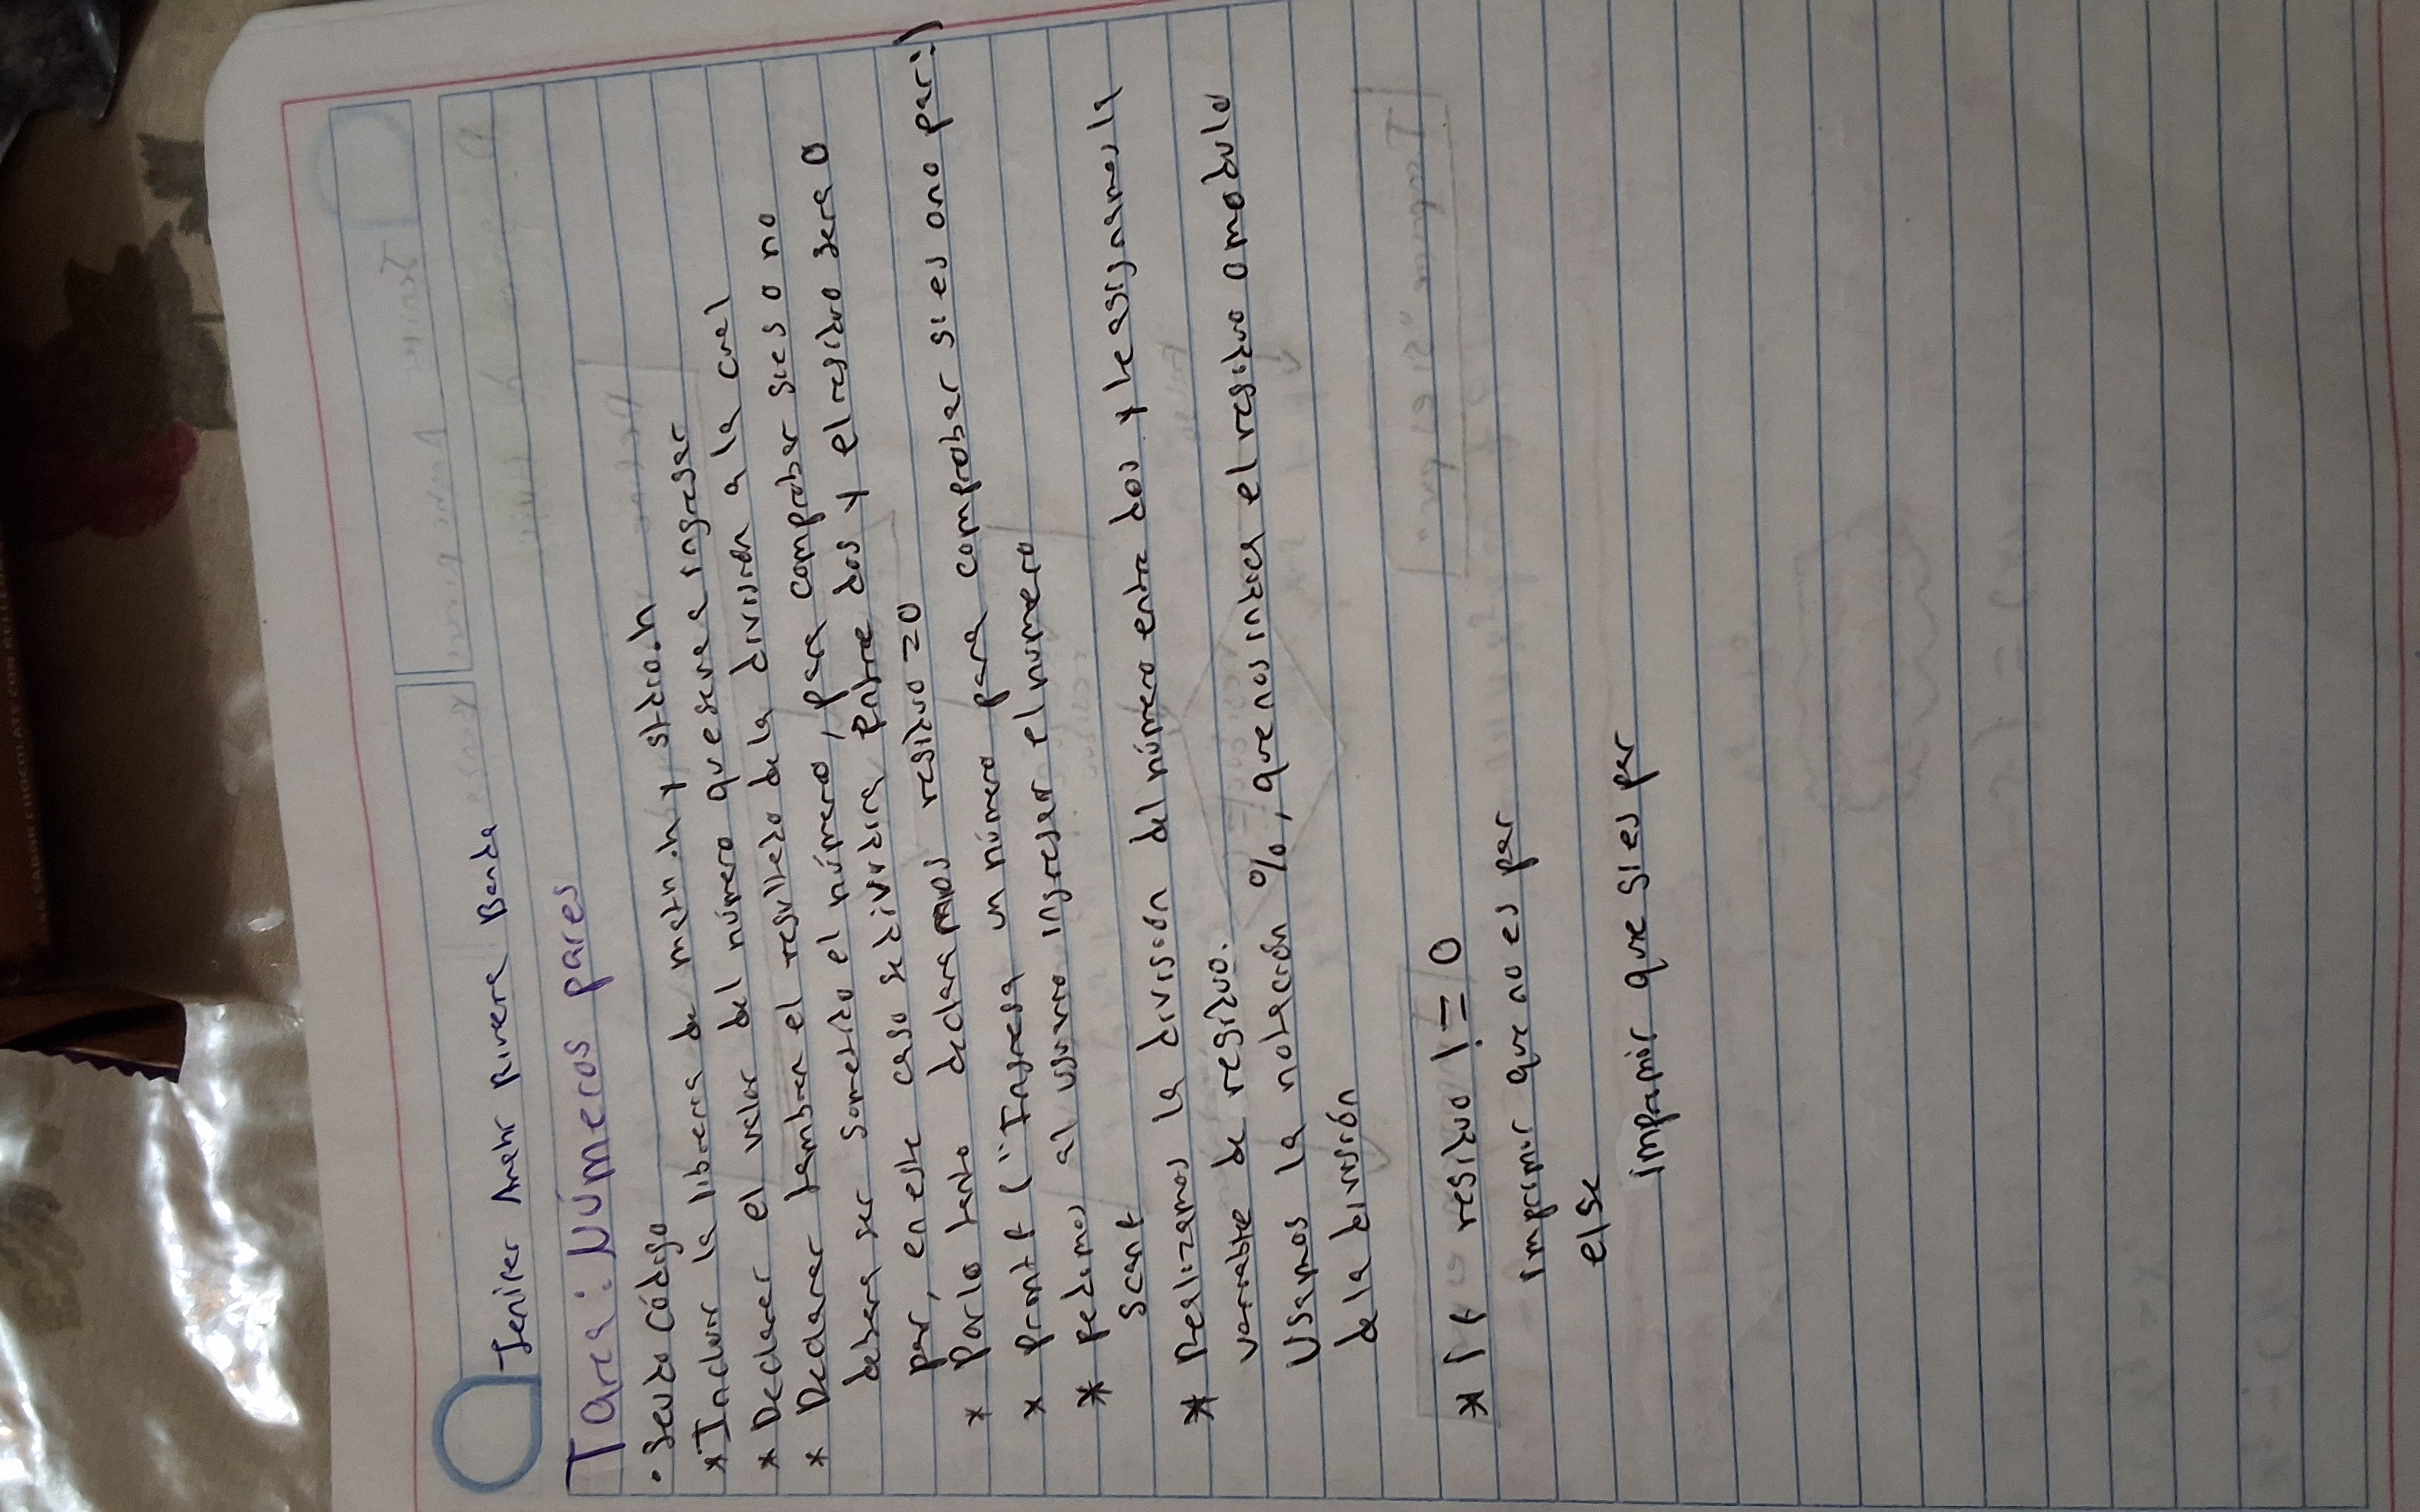 SABOR CHOCOLATE CON RELLENO
Jenifer Anahi Rivera Banda
Tarea: Números pares
• Seudo código
* Incluir la libreria de math.h y stdio.h
* Declarar el valor del número que se va a ingresar
* Declarar tambien el resultado de la división a la cual
debera ser sometido el número, para comprobar si es o no
par, en este caso se dividira entre dos y el residuo sera 0
* Por lo tanto declaramos residuo = 0
* printf ("Ingresa un número para comprobar si es o no par:")
* pedimos al usuario ingresar el numero
scanf
* Realizamos la división del número entre dos y le asignamos la
variable de residuo.
Usamos la notación %, que nos indica el residuo o modulo
de la división
* if residuo != 0
imprimir que no es par
else
imprimir que si es par